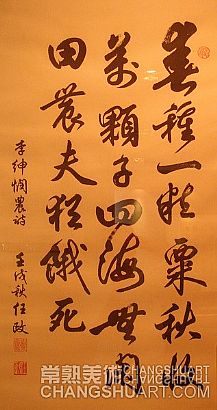 春種一粒粟秋收
萬顆子四海無閑
田農夫猶餓死
李紳憫農詩 壬戌秋任政
常熟美術
CHANGSHUART.COM